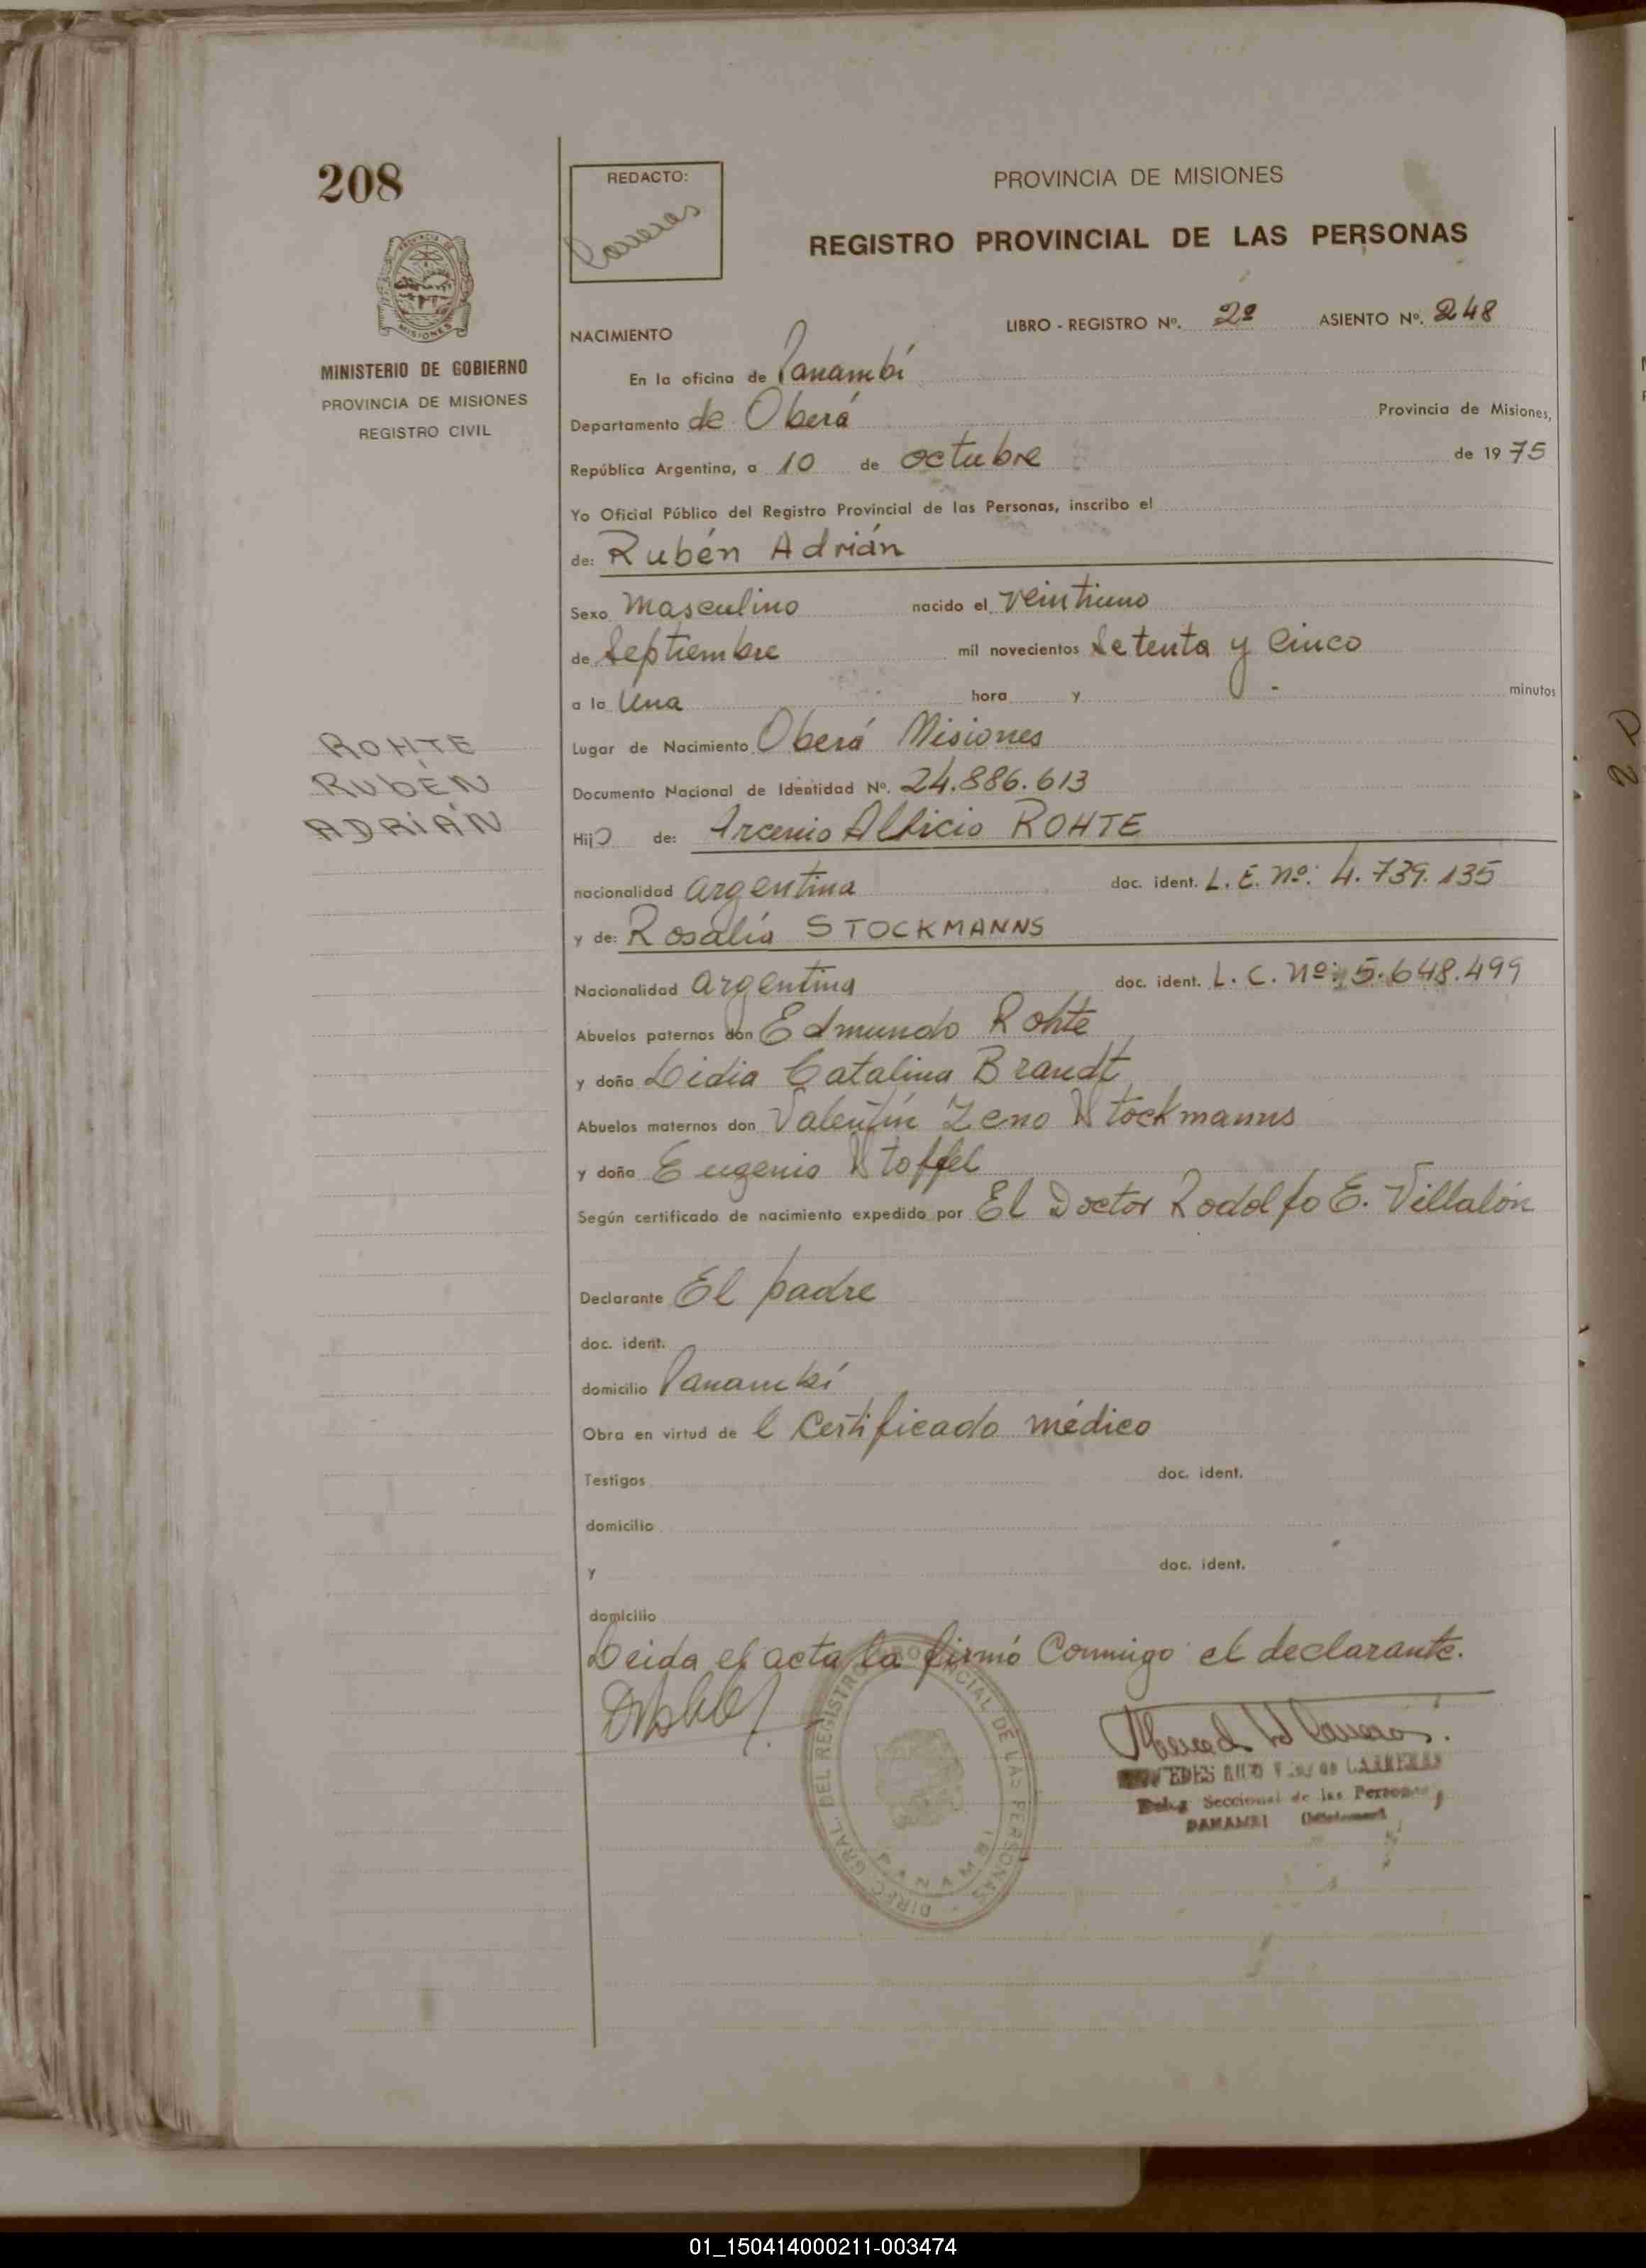 208
REDACTO:
Carreras
PROVINCIA DE MISIONES
REGISTRO PROVINCIAL DE LAS PERSONAS
MINISTERIO DE GOBIERNO
PROVINCIA DE MISIONES
REGISTRO CIVIL
NACIMIENTO
LIBRO - REGISTRO Nº. 2º ASIENTO Nº. 248
En la oficina de Panambí
Departamento de Oberá Provincia de Misiones,
República Argentina, a 10 de octubre de 1975
Yo Oficial Público del Registro Provincial de las Personas, inscribo el
de: Rubén Adrián
Sexo Masculino nacido el veintiuno
de Septiembre mil novecientos Setenta y Cinco
a la Una hora y - minutos
Lugar de Nacimiento Oberá Misiones
Documento Nacional de Identidad Nº. 24.886.613
ROHTE
RUBÉN
ADRIÁN
Hijo de: Arcenio ROHTE
nacionalidad argentina doc. ident. L. E. nº: 4.739.135
y de: Rosalía STOCKMANNS
Nacionalidad argentina doc. ident. L. C. nº: 5.648.499
Abuelos paternos don Edmundo Rohte
y doña Lidia Catalina Brandt
Abuelos maternos don Valentín Zeno Stockmanns
y doña Eugenia Stoffel
Según certificado de nacimiento expedido por El Doctor Rodolfo E. Villalón
Declarante El padre
doc. ident.
domicilio Panambí
Obra en virtud de l Certificado médico
Testigos doc. ident.
domicilio
y doc. ident.
domicilio
Leida el acta la firmó Conmigo el declarante.
DIREC. GRAL. DEL REGISTRO PROVINCIAL DE LAS PERSONAS
PANAMBI
CARRERAS
Seccional de las Personas
PANAMBI (Misiones)
01_150414000211-003474